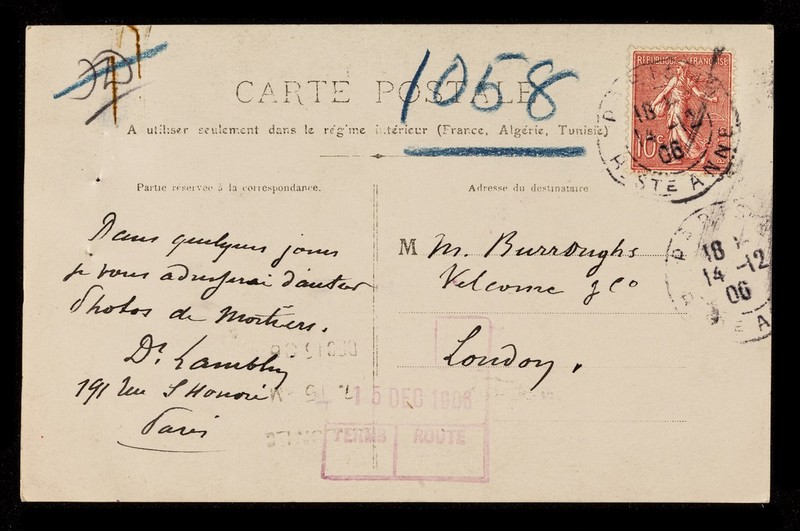 1058
CARTE POSTALE
A utiliser seulement dans le régime intérieur (France, Algérie, Tunisie)
RÉPUBLIQUE FRANÇAISE
10c
PARIS
18
14 -12
06
R. STE ANNE
Partie réservée à la correspondance.
Dans quelques jours
je vous adresserai d'autres
Photos de Mortiers.
Dr. Lambling
191 rue St Honoré
Paris
Adresse du destinataire
M M. Burroughs
Velcome & Co
London.
18
14 -12
06
15 DEC 1906
TERMS
ROUTE